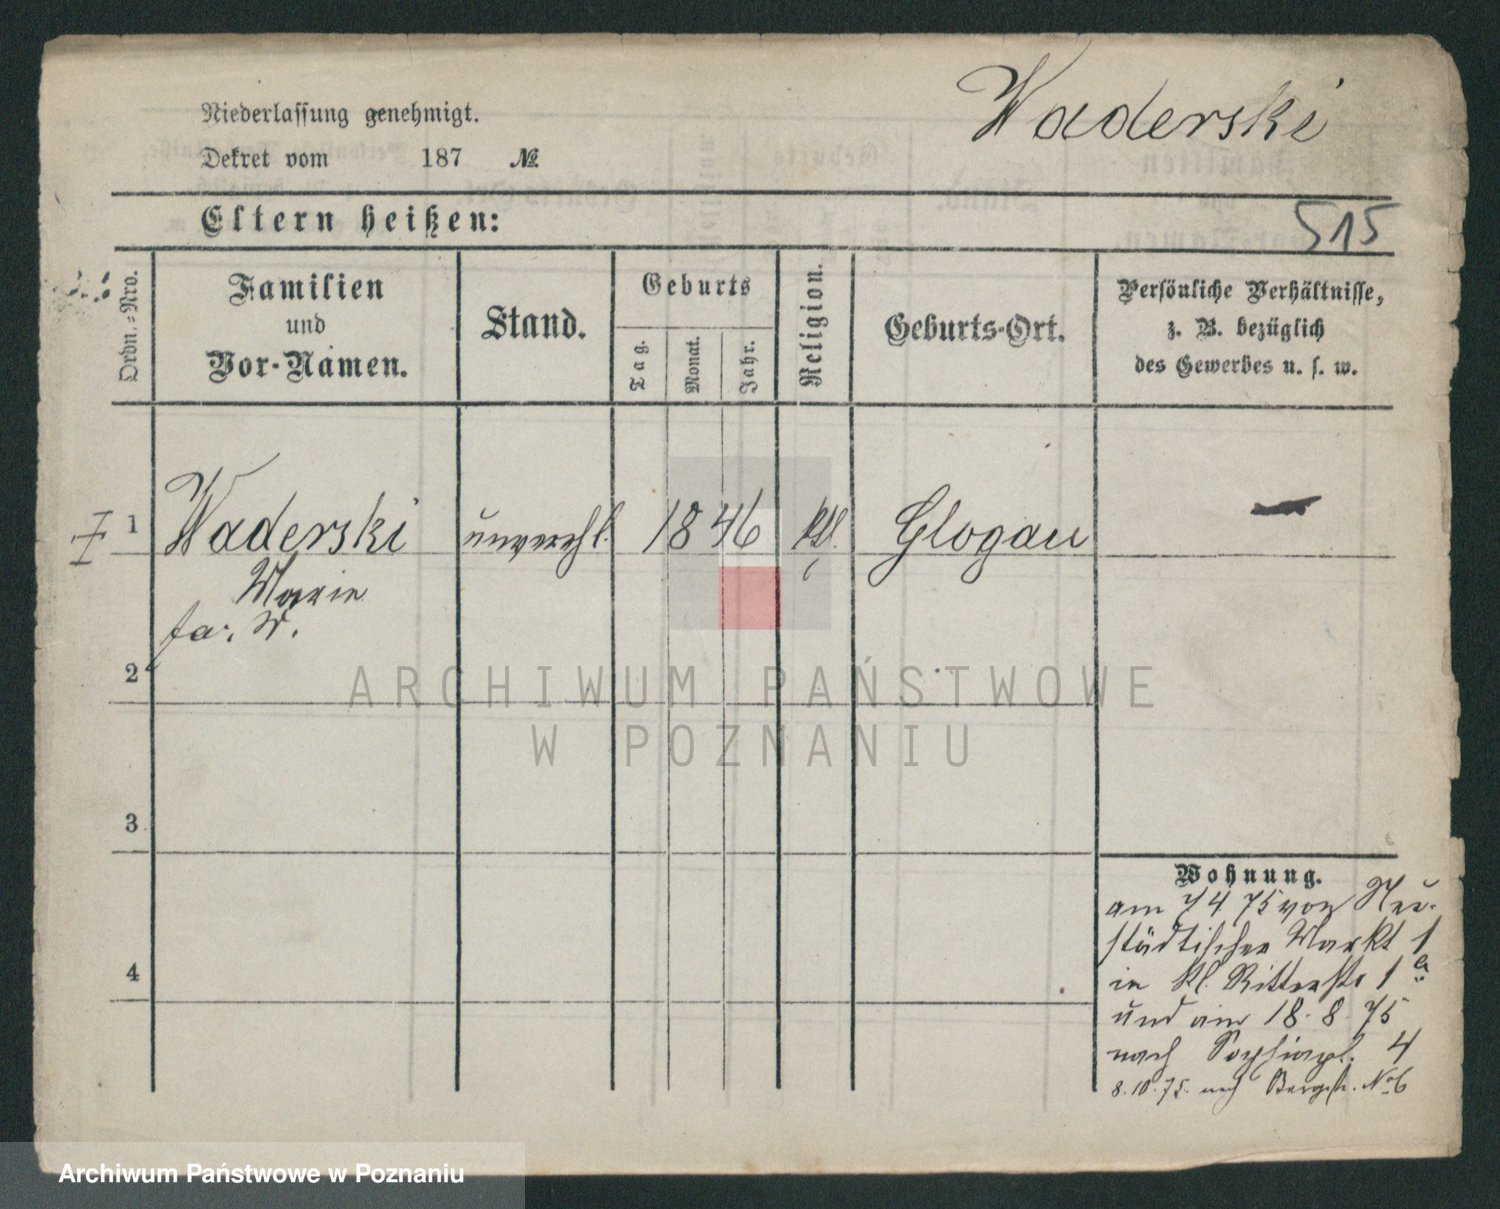 Waderski
Niederlassung genehmigt.
Dekret vom 187 №
Eltern heißen:
515
Ordn.-Nro.
Familien
und
Vor-Namen.
Stand.
Geburts
Tag.
Monat.
Jahr.
Religion.
Geburts-Ort.
Persönliche Verhältnisse,
z. B. bezüglich
des Gewerbes u. s. w.
1 Waderski unverehl. 1846 Glogau
Marie
W.
2
ARCHIWUM PAŃSTWOWE
W POZNANIU
3
Wohnung.
am 7/4 75 von Neu-
städtischer Markt 1
4
in kl. Ritterstr 1 a
und am 18. 8. 75
nach Sophienpl. 4
8.10.75. nach Bergstr. No 6
Archiwum Państwowe w Poznaniu